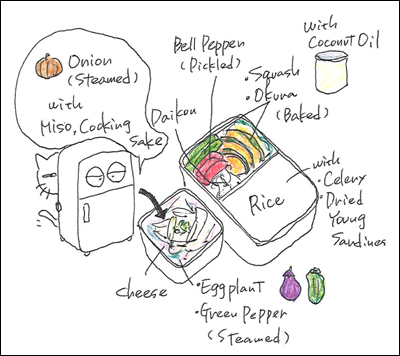 Onion
(Steamed)
with
Miso, Cooking
Sake
Bell Peppen
(Pickled)
with
Coconut Oil
Daikon
・Squash
・Okura
(Baked)
Rice
with
・Celery
・Dried
Young
Sardines
cheese
・Eggplant
・Green Pepper
(Steamed)